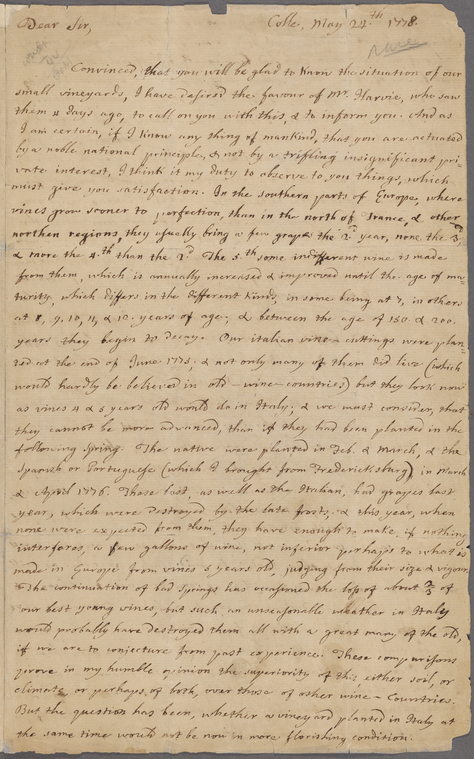 Dear Sir, Colle, May 24.th 1778.
rare
Convinced, that you will be glad to know the situation of our
small vineyards, I have desired the favour of Mr. Harvie, who saw
them 4 days ago, to call on you with this, & to inform you. And as
I am certain, if I know any thing of mankind, that you are actuated
by a noble national principle, & not by a triffling insignificant pri-
vate interest, I think it my duty to observe to you things, which
must give you satisfaction. In the southern parts of Europe, where
vines grow sooner to perfection, than in the north of France, & other
northen regions, they usually bring a few grapes the 2.d year, none the 3.d
& more the 4.th than the 2.d The 5.th some indifferent wine is made
from them, which is annually increased & improved until the age of ma-
turity, which differs in the different kinds, in some being at 7, in others
at 8, 9, 10, 11, & 12. years of age; & between the age of 150. & 200.
years they begin to decay. Our italian vine-cuttings were plan-
ted at the end of June 1775, & not only many of them did live (which
would hardly be believed in old-wine-countries) but they look now
as vines 4 & 5 years old would do in Italy; & we must consider, that
they cannot be more advanced, than if they had been planted in the
following Spring. The native were planted in Feb. & March, & the
Spanish or Portuguese (which I brought from Fredericksburg) in March
& April 1776. These last, as well as the Italian, had grapes last
year, which were destroyed by the late frosts; & this year, when
none were expected from them, they have enough to make, if nothing
interferes, a few gallons of wine, not inferior perhaps to what is
made in Europe from vines 5 years old, judging from their size & vigour.
The continuation of bad Springs has occasioned the loss of about 2/3 of
our best young vines, but such an unseasonable weather in Italy
would probably have destroyed them all with a great many of the old,
if we are to conjecture from past experience. These comparisons
prove in my humble opinion the superiority of this either soil, or
climate, or perhaps of both, over those of other wine-Countries.
But the question has been, whether a vineyard planted in Italy at
the same time would not be now in more florishing condition.